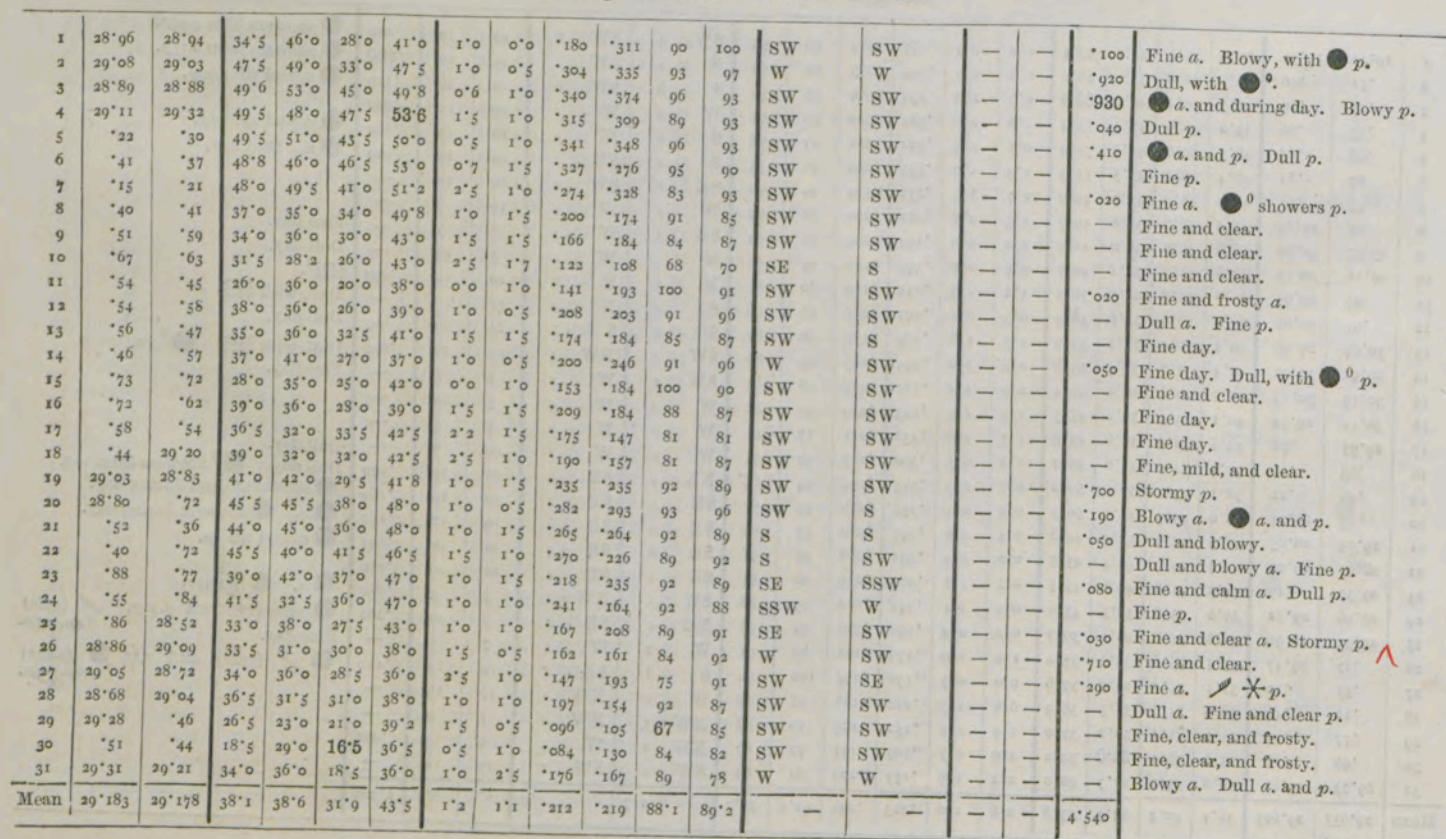 1 28·96 28·94 34·5 46·0 28·0 41·0 1·0 0·0 ·180 ·311 90 100 SW SW — — ·100 Fine a. Blowy, with ● p.
2 29·08 29·03 47·5 49·0 33·0 47·5 1·0 0·5 ·304 ·335 93 97 W W — — ·920 Dull, with ● ⁰.
3 28·89 28·88 49·6 53·0 45·0 49·8 0·6 1·0 ·340 ·374 96 93 SW SW — — ·930 ● a. and during day. Blowy p.
4 29·11 29·32 49·5 48·0 47·5 53·6 1·5 1·0 ·315 ·309 89 93 SW SW — — ·040 Dull p.
5 ·22 ·30 49·5 51·0 43·5 50·0 0·5 1·0 ·341 ·348 96 93 SW SW — — ·410 ● a. and p. Dull p.
6 ·41 ·37 48·8 46·0 46·5 53·0 0·7 1·5 ·327 ·276 95 90 SW SW — — — Fine p.
7 ·15 ·21 48·0 49·5 41·0 51·2 2·5 1·0 ·274 ·328 83 93 SW SW — — ·020 Fine a. ● ⁰ showers p.
8 ·40 ·41 37·0 35·0 34·0 49·8 1·0 1·5 ·200 ·174 91 85 SW SW — — — Fine and clear.
9 ·51 ·59 34·0 36·0 30·0 43·0 1·5 1·5 ·166 ·184 84 87 SW SW — — — Fine and clear.
10 ·67 ·63 31·5 28·2 26·0 43·0 2·5 1·7 ·122 ·108 68 70 SE S — — — Fine and clear.
11 ·54 ·45 26·0 36·0 20·0 38·0 0·0 1·0 ·141 ·193 100 91 SW SW — — ·020 Fine and frosty a.
12 ·54 ·58 38·0 36·0 26·0 39·0 1·0 0·5 ·208 ·203 91 96 SW SW — — — Dull a. Fine p.
13 ·56 ·47 35·0 36·0 32·5 41·0 1·5 1·5 ·174 ·184 85 87 SW S — — — Fine day.
14 ·46 ·57 37·0 41·0 27·0 37·0 1·0 0·5 ·200 ·246 91 96 W SW — — ·050 Fine day. Dull, with ● ⁰ p.
15 ·73 ·72 28·0 35·0 25·0 42·0 0·0 1·0 ·153 ·184 100 90 SW SW — — — Fine and clear.
16 ·72 ·62 39·0 36·0 28·0 39·0 1·5 1·5 ·209 ·184 88 87 SW SW — — — Fine day.
17 ·58 ·54 36·5 32·0 33·5 42·5 2·2 1·5 ·175 ·147 81 81 SW SW — — — Fine day.
18 ·44 29·20 39·0 32·0 32·0 42·5 2·5 1·0 ·190 ·157 81 87 SW SW — — — Fine, mild, and clear.
19 29·03 28·83 41·0 42·0 29·5 41·8 1·0 1·5 ·235 ·235 92 89 SW SW — — ·700 Stormy p.
20 28·80 ·72 45·5 45·5 38·0 48·0 1·0 0·5 ·282 ·293 93 96 SW S — — ·190 Blowy a. ● a. and p.
21 ·52 ·36 44·0 45·0 36·0 48·0 1·0 1·5 ·265 ·264 92 89 S S — — ·050 Dull and blowy.
22 ·40 ·72 45·5 40·0 41·5 46·5 1·5 1·0 ·270 ·226 89 92 S SW — — — Dull and blowy a. Fine p.
23 ·88 ·77 39·0 42·0 37·0 47·0 1·0 1·5 ·218 ·235 92 89 SE SSW — — ·080 Fine and calm a. Dull p.
24 ·55 ·84 41·5 32·5 36·0 47·0 1·0 1·0 ·241 ·164 92 88 SSW W — — — Fine p.
25 ·86 28·52 33·0 38·0 27·5 43·0 1·0 1·0 ·167 ·208 89 91 SE SW — — ·030 Fine and clear a. Stormy p.
26 28·86 29·09 33·5 31·0 30·0 38·0 1·5 0·5 ·162 ·161 84 92 W SW — — ·710 Fine and clear.
27 29·05 28·72 34·0 36·0 28·5 36·0 2·5 1·0 ·147 ·193 75 91 SW SE — — ·290 Fine a. p.
28 28·68 29·04 36·5 31·5 31·0 38·0 1·0 1·0 ·197 ·154 92 87 SW SW — — — Dull a. Fine and clear p.
29 29·28 ·46 26·5 23·0 21·0 39·2 1·5 0·5 ·096 ·105 67 85 SW SW — — — Fine, clear, and frosty.
30 ·51 ·44 18·5 29·0 16·5 36·5 0·5 1·0 ·084 ·130 84 82 SW SW — — — Fine, clear, and frosty.
31 29·31 29·21 34·0 36·0 18·5 36·0 1·0 2·5 ·176 ·167 89 78 W W — — — Blowy a. Dull a. and p.
Mean 29·183 29·178 38·1 38·6 31·9 43·5 1·2 1·1 ·212 ·219 88·1 89·2 — — — — 4·540